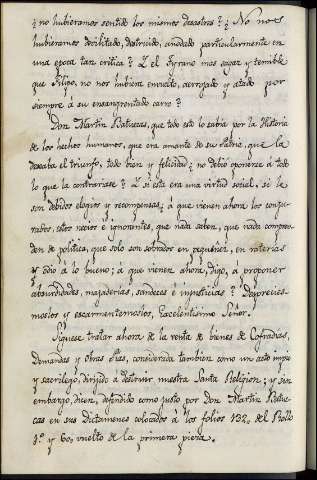 ¿no hubieramos sentido los mismos desastres? ¿No nos
hubieramos devilitado, destruido, anodado particularmente en
una epoca tan critica? Y el Tyrano mas sagaz y temible
que Filipo, no nos hubiera envuelto, aerrojado y atado por
siempre a su ensangrentado carro?
Don Martin Batuecas, que todo esto lo sabia por la Historia
de los hechos humanos, que era amante de su Patria, que la
deseaba el triunfo, todo bien y felicidad; no debio oponerse á todo
lo que la contrarrase? Y si esta era una virtud social, si le
son debidos elogios y recompensas; á que vienen ahora los conju-
rados, estos necios é ignorantes, que nada saben, que nada compren-
den de politica, que solo son sobrados en pequeñez, en raterias
y odio á lo bueno; á que vienen ahora, digo, á proponer
absurdidades, majaderias, sandeces é injusticias? Despreciese-
moslos y escarmentemoslos, Excelentisimo Señor.
Siguese tratar ahora de la venta de bienes de Cofradias,
Demandas y Obras Pias, considerada tambien como un acto impio
y sacrilego, dirijido á destruir nuestra Santa Religion; y sin
embargo dicen, defendido como justo por don Martin Batue-
cas en sus dictamenes colocados á los folios 132,, del Rollo
1º y 60,, vuelto de la primera pieza.